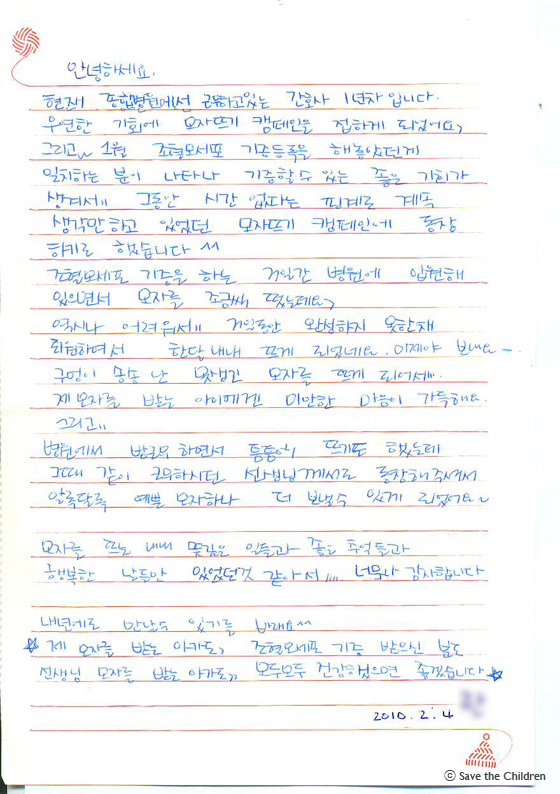 안녕하세요.
현재 종합병원에서 근무하고있는 간호사 1년차 입니다.
우연한 기회에 모자뜨기 캠페인을 접하게 되었어요,
그리고,, 1월 조혈모세포 기증등록을 해놓았던게
일치하는 분이 나타나 기증할 수 있는 좋은 기회가
생겨서!! 그동안 시간 없다는 핑계로 계속
생각만 하고 있었던 모자뜨기 캠페인에 동참
하기로 했습니다 ^^
조혈모세포 기증을 하는 병원에 입원해
있으면서 모자를 조금씩 떴는데요,
역시나 어려워서!! 완성하지 못한채
퇴원하면서 한달내내 뜨게 되었네요. 이제야 보내요 ~
구멍이 송송 난 못생긴 모자를 뜨게 되어서..
제 모자를 받는 아이에겐 미안한 마음이 가득해요.
그리고,,
병원에서 근무 하면서 틈틈이 뜨기도 했는데
그때 같이 근무하시던 선생님께서도 동참해주셔서
알록달록 예쁜 모자하나 더 보낼수 있게 되었어요~
모자를 뜨는 내내 뜻깊은 일들과 좋은 추억들과
행복한 날들만 있었던것 같아서,,,, 너무나 감사합니다
내년에도 만날수 있기를 바래요^^
☆ 제 모자를 받는 아가도, 조혈모세포 기증 받으신 분도
선생님 모자를 받는 아가도,, 모두모두 건강했으면 좋겠습니다 ☆
2010. 2. 4
ⓒ Save the Children